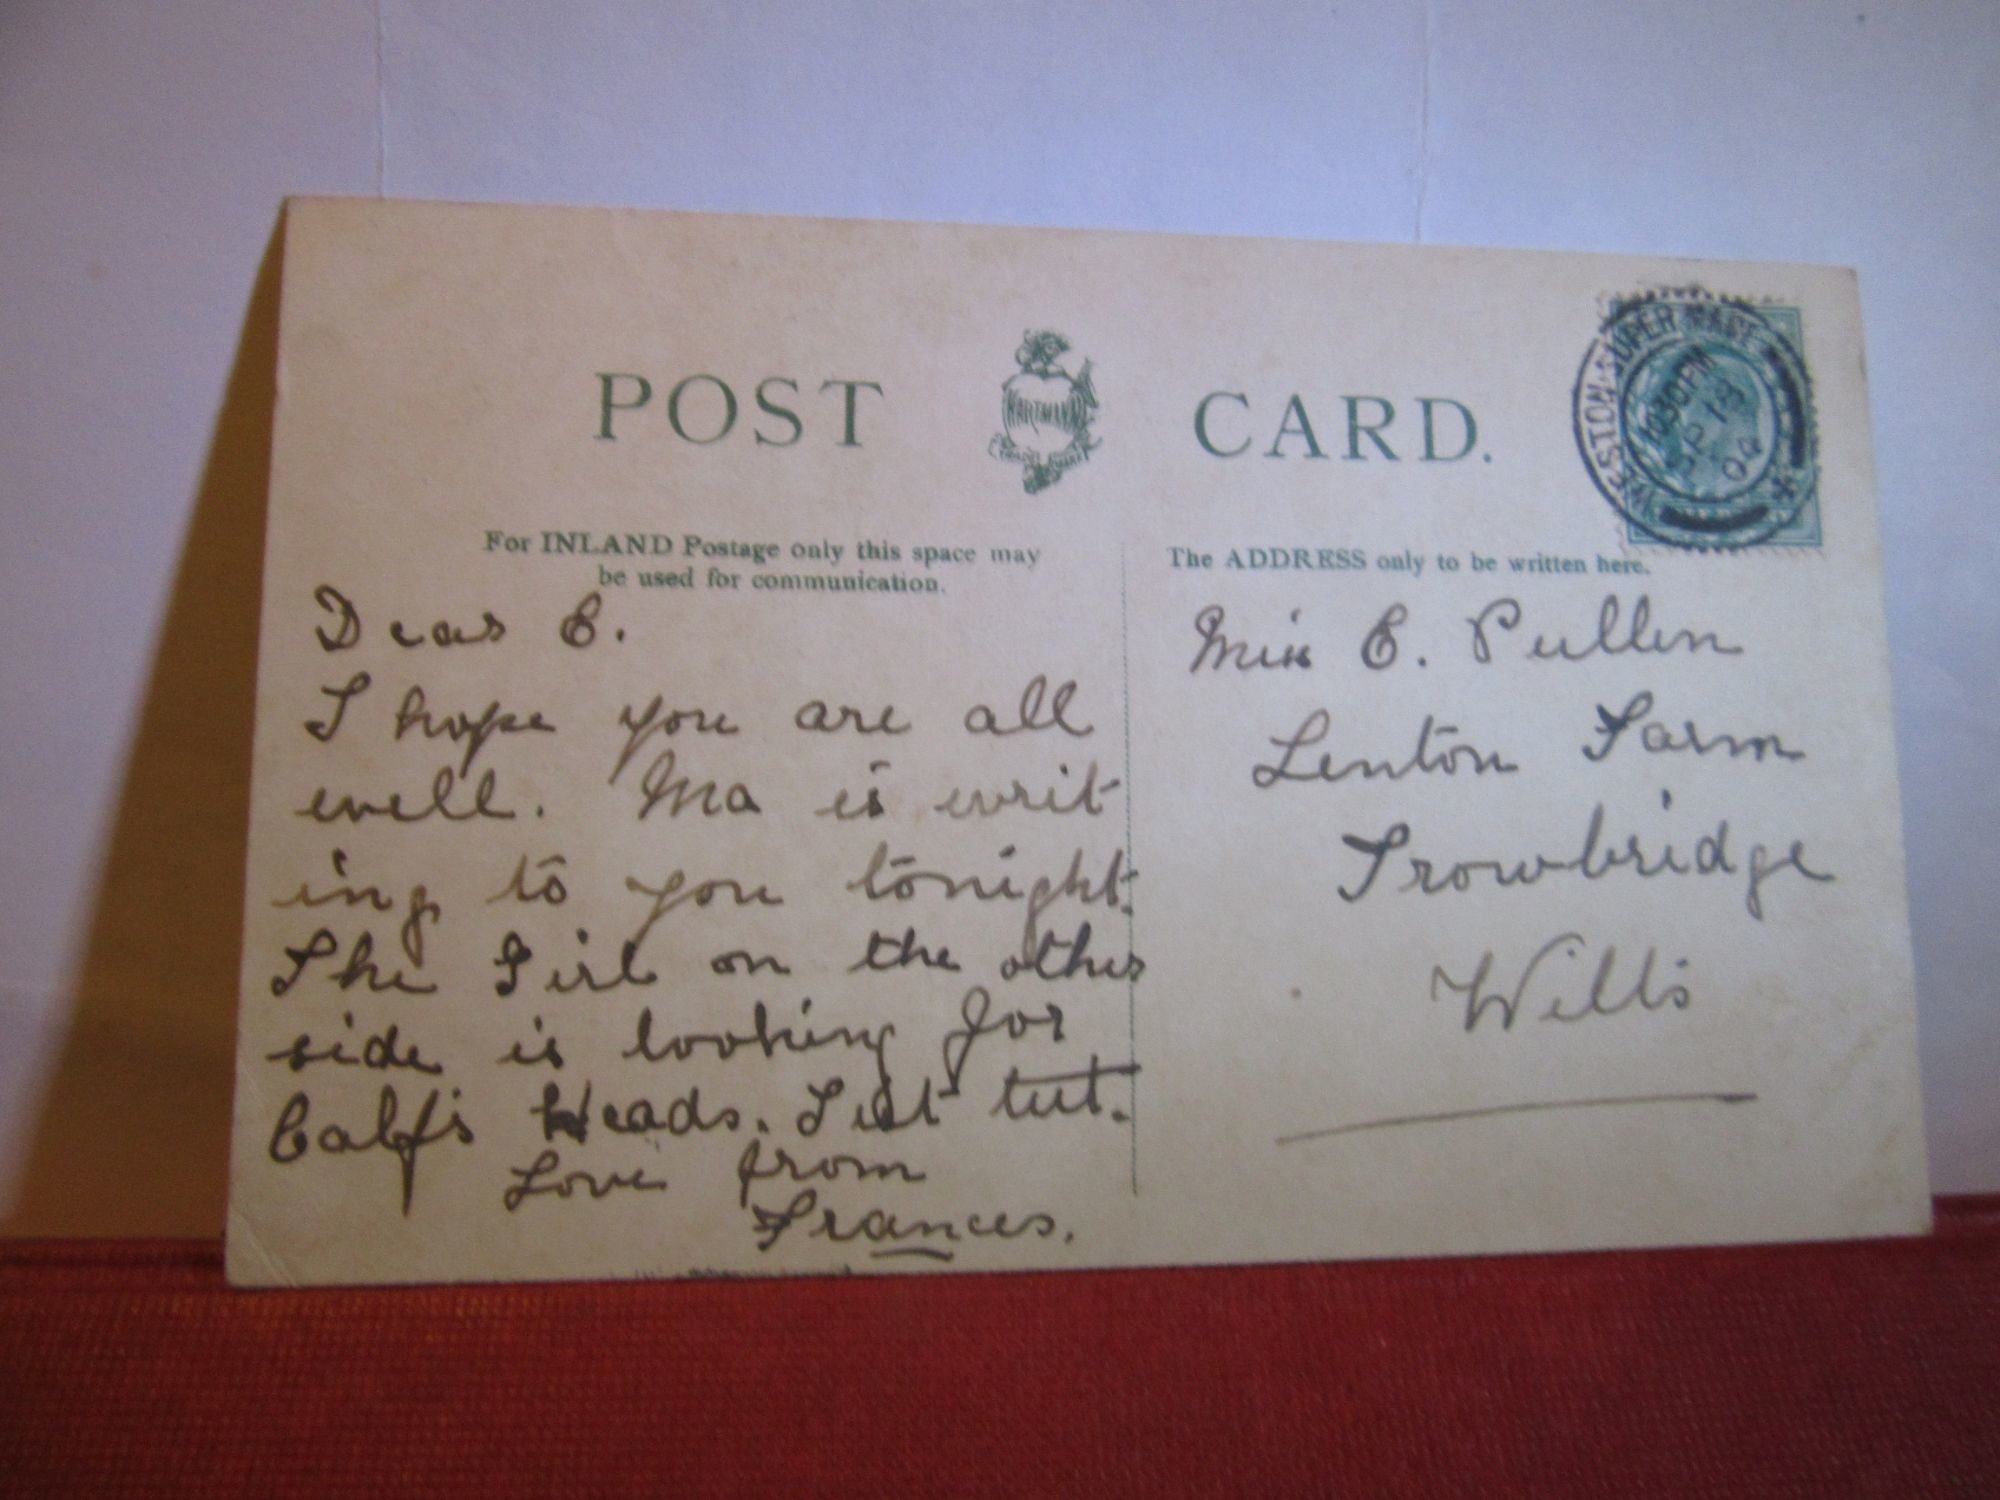 POST CARD.
HARTMANN
TRADE MARK
WESTON-SUPER-MARE
1030PM
SP 18
04
For INLAND Postage only this space may
be used for communication.
The ADDRESS only to be written here.
Dear E.
I hope you are all
well. Ma is writ
ing to you tonight.
The Girl on the other
side is looking for
Calf's Heads. Tut tut.
Love from
Frances.
Miss E. Pullen
Lenton Farm
Trowbridge
Wilts